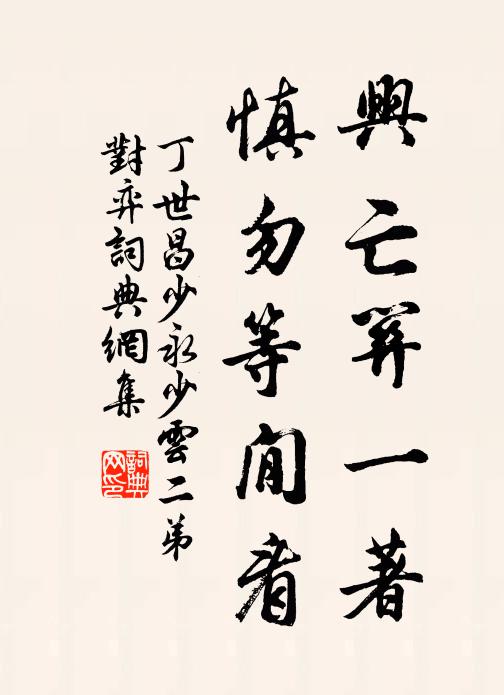 興亡關一著
慎勿等閒看
丁世昌少永少雲二弟
對弈詞典網集
詞典
网印